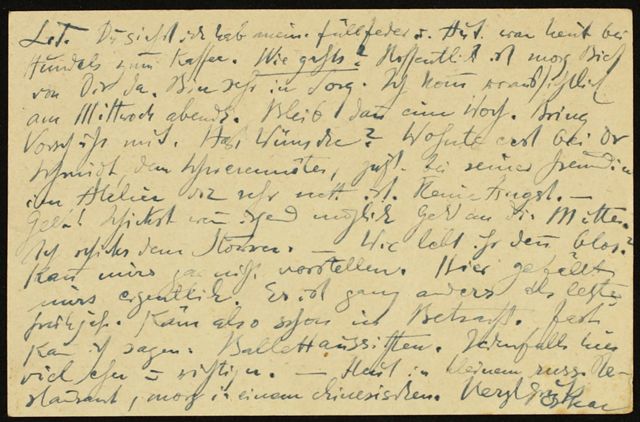 Du siehst ich hab meine Füllfeder u. Hut. war heut bei
zum Kaffee. Wie gehts? Hoffentlich ist morg Brief
von Dir da. Bin sehr in Sorg. Ich komm voraussichtlich
am Mittwoch abends. Bleib dann eine Woch. Bring
Vorschüss mit. Hast Wünsche? Wohnte erst bei Dr
Schmidt dem jetzt bei seiner Freundin
im Atelier wo sehr nett ist. Keine Angst. —
Geld! Schickst wenn irgend möglich Geld an die Mitte.
Ich schicks dem . — Wie lebt ihr denn blos?
Kann mirs gar nicht vorstellen. Hier gefällt
mirs eigentlich. Es ist ganz anders als letzte
Frühjahr. Käm also schon in Betracht. Fast
kann ich sagen. Ballettaussichten. Jedenfalls hier
viel eher u wichtiger. — Heut in kleinem russ. Re-
staurant, morg in einem chinesischen. Herzl